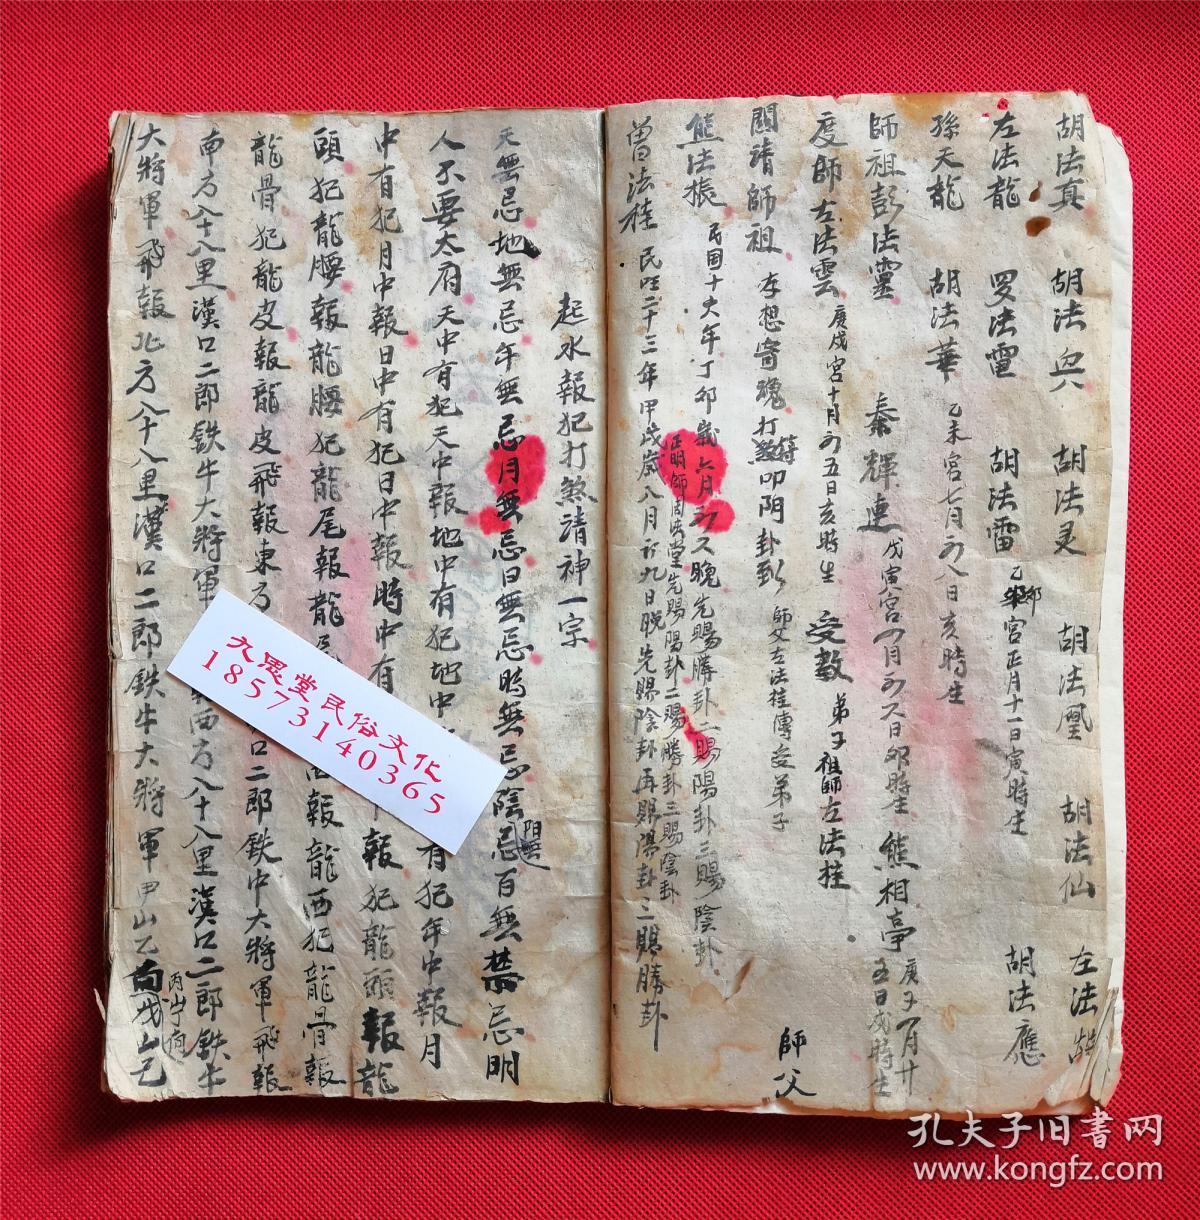 胡法真 胡法兵 胡法灵 胡法凰 胡法仙 左法
左法龍 罗法雷 胡法雷 乙卯宮正月十一日寅時生 胡法應
孫天龍 胡法華 乙未宮七月初八日亥時生
師祖彭法靈 秦輝連 戊寅宮四月初六日卯時生 熊相亭 庚子四月十五日戌時生
度師左法雲 庚戌宮十月初五日亥時生 受教 弟子祖師左法桂
關請師祖 存想寄魂打符煞叩阴卦 師父左法桂傳受弟子 師父
熊法振 民国十六年丁卯歲六月初 晚先賜勝卦二賜陽卦三賜陰卦
正明師周法堂先賜陽卦二賜勝卦三賜陰卦
曾法桂 民 二十三年甲戌歲八月初九日晚先賜陰卦再賜陽卦三賜勝卦
起水報犯打煞請神一宗
天無忌地無忌年無忌月無忌日無忌時無忌陰無忌陽無忌百無禁忌明
人不要太府天中有犯天中報地中有犯地中 有犯年中報月
中有犯月中報日中有犯日中報時中有 報犯龍頭報龍
頭犯龍腰報龍腰犯龍尾報龍 報龍西犯龍骨報
龍骨犯龍皮報龍皮飛報東方 口二郎鉄牛大將軍飛報
南方八十八里漢口二郎鉄牛大將軍 西方八十八里漢口二郎鉄牛
大將軍飛報北方八十八里漢口二郎鉄牛大將軍甲山乙 丙山丁 戊山己
九思堂民俗文化
18573140365
孔夫子旧书网
www.kongfz.com